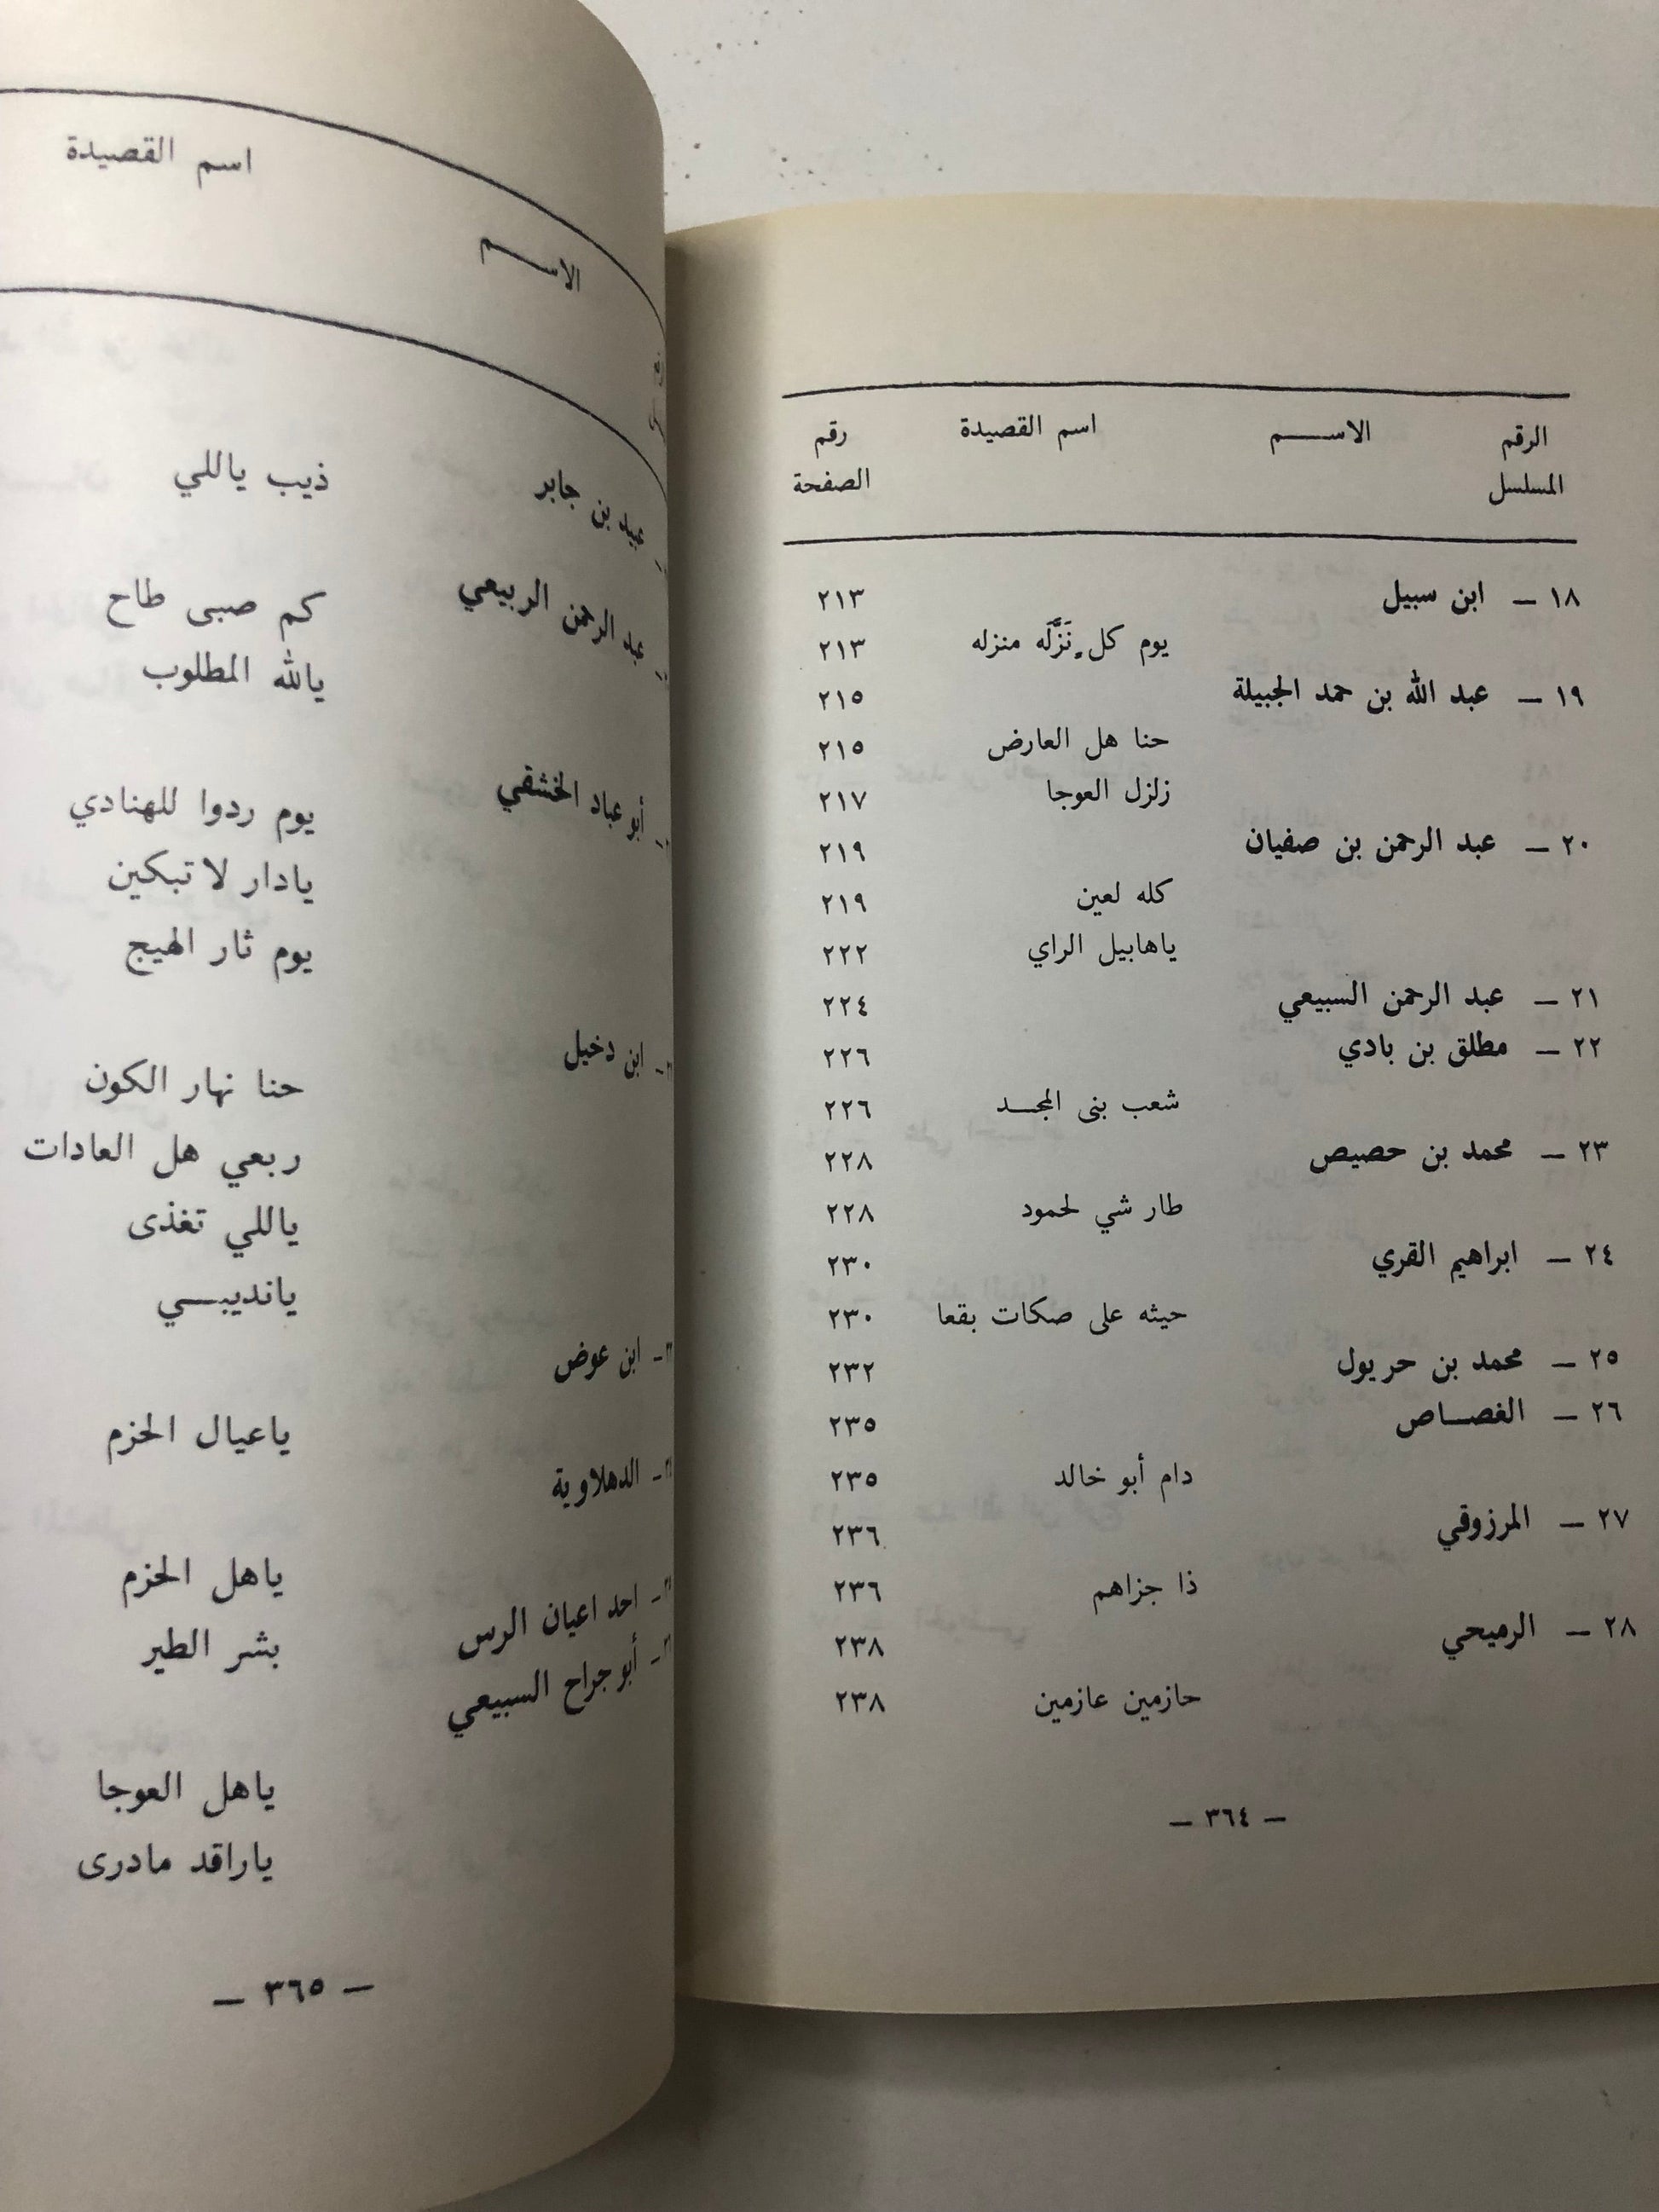 الرقم الاســـم اسم القصيدة رقم
المسلسل الصفحة
١٨ — ابن سبيل ٢١٣
يوم كل نَزَّلَه منزله ٢١٣
١٩ — عبد الله بن حمد الجبيلة ٢١٥
حنا هل العارض ٢١٥
زلزل العوجا ٢١٧
٢٠ — عبد الرحمن بن صفيان ٢١٩
كله لعين ٢١٩
ياهابيل الراي ٢٢٢
٢١ — عبد الرحمن السبيعي ٢٢٤
٢٢ — مطلق بن بادي ٢٢٦
شعب بنى المجـــد ٢٢٦
٢٣ — محمد بن حصيص ٢٢٨
طار شي لحمود ٢٢٨
٢٤ — ابراهيم القري ٢٣٠
حيثه على صكات بقعا ٢٣٠
٢٥ — محمد بن حريول ٢٣٢
٢٦ — الغصـــاص ٢٣٥
دام أبو خالد ٢٣٥
٢٧ — المرزوقي ٢٣٦
ذا جزاهم ٢٣٦
٢٨ — الرميحي ٢٣٨
حازمين عازمين ٢٣٨
— ٣٦٤ —
الاســـم اسم القصيدة
عبيد بن جابر ذيب ياللي
عبد الرحمن الربيعي
كم صبى طاح
يالله المطلوب
أبو عباد الخشقي
يوم ردوا للهنادي
يادار لا تبكين
يوم ثار الهيج
ابن دخيل
حنا نهار الكون
ربعي هل العادات
ياللي تغذى
يانديبـــي
ابن عوض
ياعيال الحزم
الدهلاوية
ياهل الحزم
احد اعيان الرس بشر الطير
أبو جراح السبيعي
ياهل العوجا
ياراقد مادرى
— ٣٦٥ —